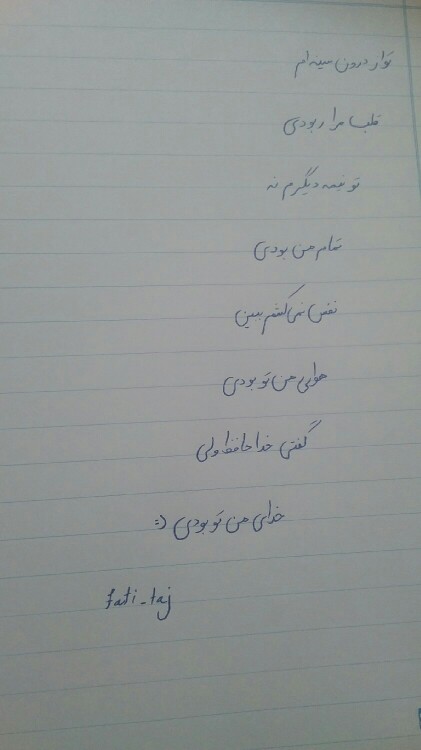 تو از درون سینه‌ام
قلب مرا ربودی
تو نیمه دیگرم نه
تمام من بودی
نفس نمی‌کشم ببین
هوای من تو بودی
گفتی خداحافظ ولی
خدای من تو بودی :)
fati-taj